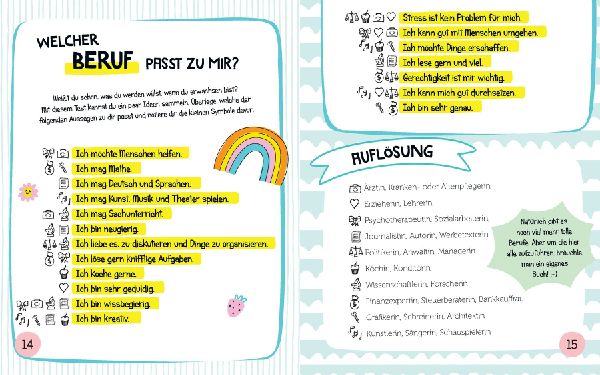 WELCHER
BERUF PASST ZU MIR?
Weißt du schon, was du werden willst, wenn du erwachsen bist?
Mit diesem Test kannst du ein paar Ideen sammeln. Überlege, welche der
folgenden Aussagen zu dir passt und notiere dir die kleinen Symbole davor.
Ich möchte Menschen helfen.
Ich mag Mathe.
Ich mag Deutsch und Sprachen.
Ich mag Kunst, Musik und Theater spielen.
Ich mag Sachunterricht.
Ich bin neugierig.
Ich liebe es, zu diskutieren und Dinge zu organisieren.
Ich löse gern knifflige Aufgaben.
Ich koche gerne.
Ich bin sehr geduldig.
Ich bin wissbegierig.
Ich bin kreativ.
14
Stress ist kein Problem für mich.
Ich kann gut mit Menschen umgehen.
Ich möchte Dinge erschaffen.
Ich lese gern und viel.
Gerechtigkeit ist mir wichtig.
Ich kann mich gut durchsetzen.
Ich bin sehr genau.
AUFLÖSUNG
Ärztin, Kranken- oder Altenpflegerin
Erzieherin, Lehrerin
Psychotherapeutin, Sozialarbeiterin
Journalistin, Autorin, Werbetexterin
Politikerin, Anwältin, Managerin
Köchin, Konditorin
Wissenschaftlerin, Forscherin
Finanzexpertin, Steuerberaterin, Bankkauffrau
Grafikerin, Schreinerin, Architektin
Künstlerin, Sängerin, Schauspielerin
Natürlich gibt es
noch viel mehr tolle
Berufe. Aber um die hier
alle aufzuführen, bräuchte
man ein eigenes
Buch! :-)
15